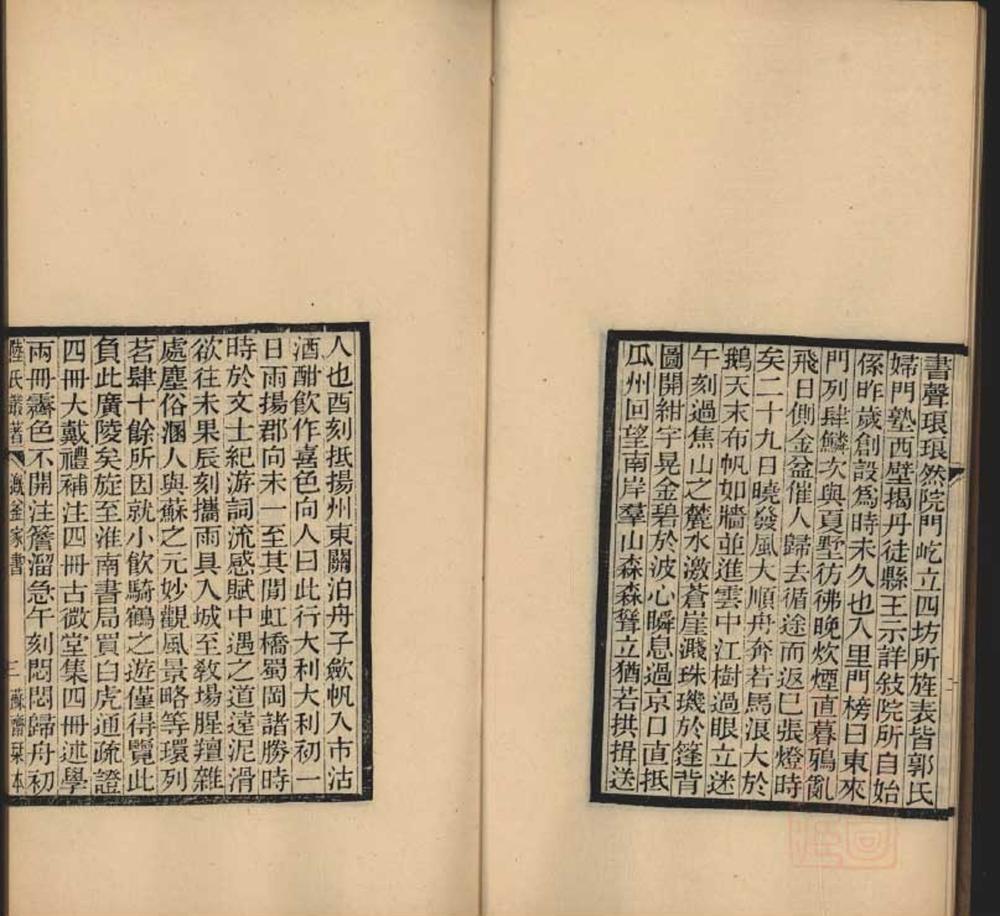 書聲琅琅然院門屹立四坊所旌表皆郭氏
婦門塾西壁揭丹徒縣王示詳敍院所自始
係昨歲創設爲時未久也入里門榜曰東來
門列肆鱗次與夏墅彷彿晚炊煙直暮鴉亂
飛日側金盆催人歸去循途而返巳張燈時
矣二十九日曉發風大順舟奔若馬浪大於
鵝天末布帆如牆並進雲中江樹過眼立迷
午刻過焦山之麓水激蒼崖濺珠璣於篷背
圖開紺宇晃金碧於波心瞬息過京口直抵
瓜州回望南岸羣山森森聳立猶若拱揖送
人也酉刻抵揚州東關泊舟子歛帆入市沽
酒酣飲作喜色向人曰此行大利大利初一
日雨揚郡向未一至其閒虹橋蜀岡諸勝時
時於文士紀游詞流感賦中遇之道遠泥滑
欲往未果辰刻攜雨具入城至敎場腥羶雜
處塵俗溷人與蘇之元妙觀風景略等環列
茗肆十餘所因就小飲騎鶴之遊僅得覽此
負此廣陵矣旋至淮南書局買白虎通疏證
四冊大戴禮補注四冊古微堂集四冊述學
兩冊霽色不開注簷溜急午刻悶悶歸舟初
陸氏叢著
溉釜家書
三
蘇齋栞本